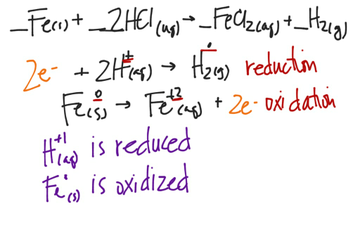 _Fe(s) + _2HCl(aq) → _FeCl2(aq) + _H2(g)
2e- + 2H+(aq) → H2(g) reduction
Fe(s) → Fe+2(aq) + 2e- oxidation
H+1(aq) is reduced
Fe(s) is oxidized